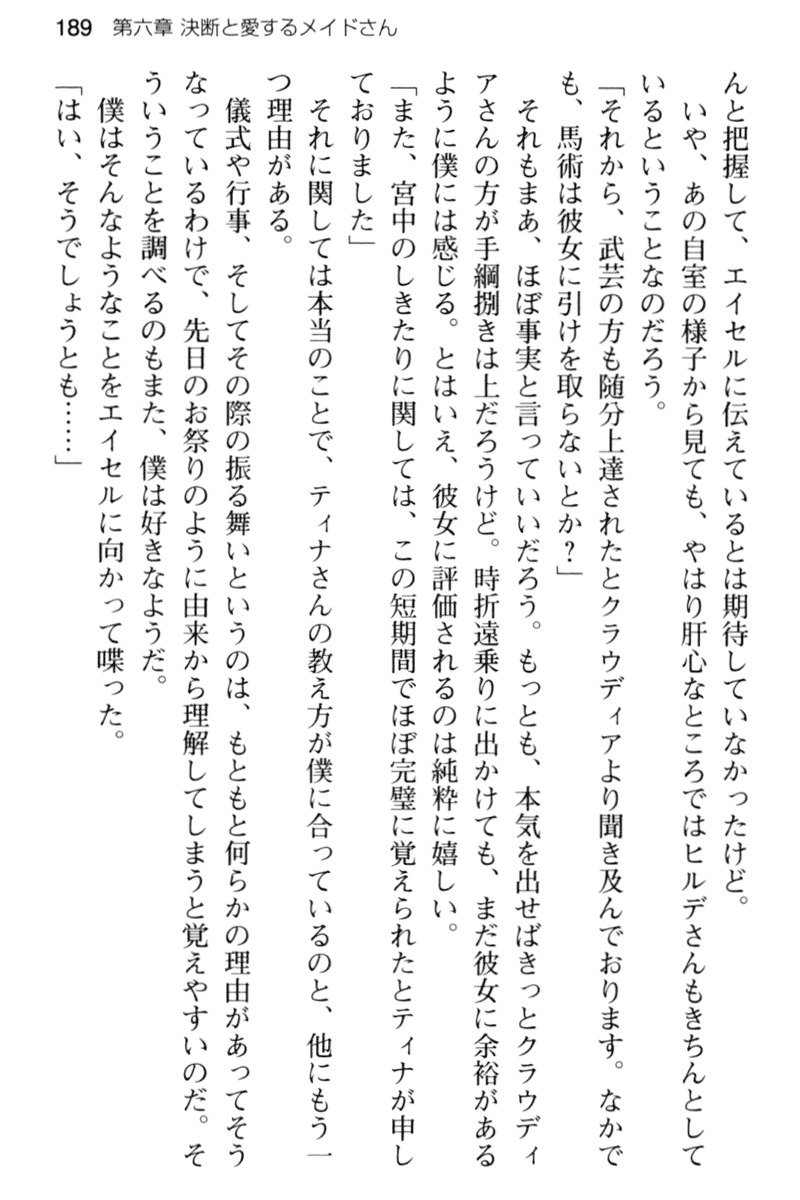 189 第六章 決断と愛するメイドさん
んと把握して、エイセルに伝えているとは期待していなかったけど。
いや、あの自室の様子から見ても、やはり肝心なところではヒルデさんもきちんとして
いるということなのだろう。
「それから、武芸の方も随分上達されたとクラウディアより聞き及んでおります。なかで
も、馬術は彼女に引けを取らないとか？」
それもまあ、ほぼ事実と言っていいだろう。もっとも、本気を出せばきっとクラウディ
アさんの方が手綱捌きは上だろうけど。時折遠乗りに出かけても、まだ彼女に余裕がある
ように僕には感じる。とはいえ、彼女に評価されるのは純粋に嬉しい。
「また、宮中のしきたりに関しては、この短期間でほぼ完璧に覚えられたとティナが申し
ておりました」
それに関しては本当のことで、ティナさんの教え方が僕に合っているのと、他にもう一
つ理由がある。
儀式や行事、そしてその際の振る舞いというのは、もともと何らかの理由があってそう
なっているわけで、先日のお祭りのように由来から理解してしまうと覚えやすいのだ。そ
ういうことを調べるのもまた、僕は好きなようだ。
僕はそんなようなことをエイセルに向かって喋った。
「はい、そうでしょうとも……」